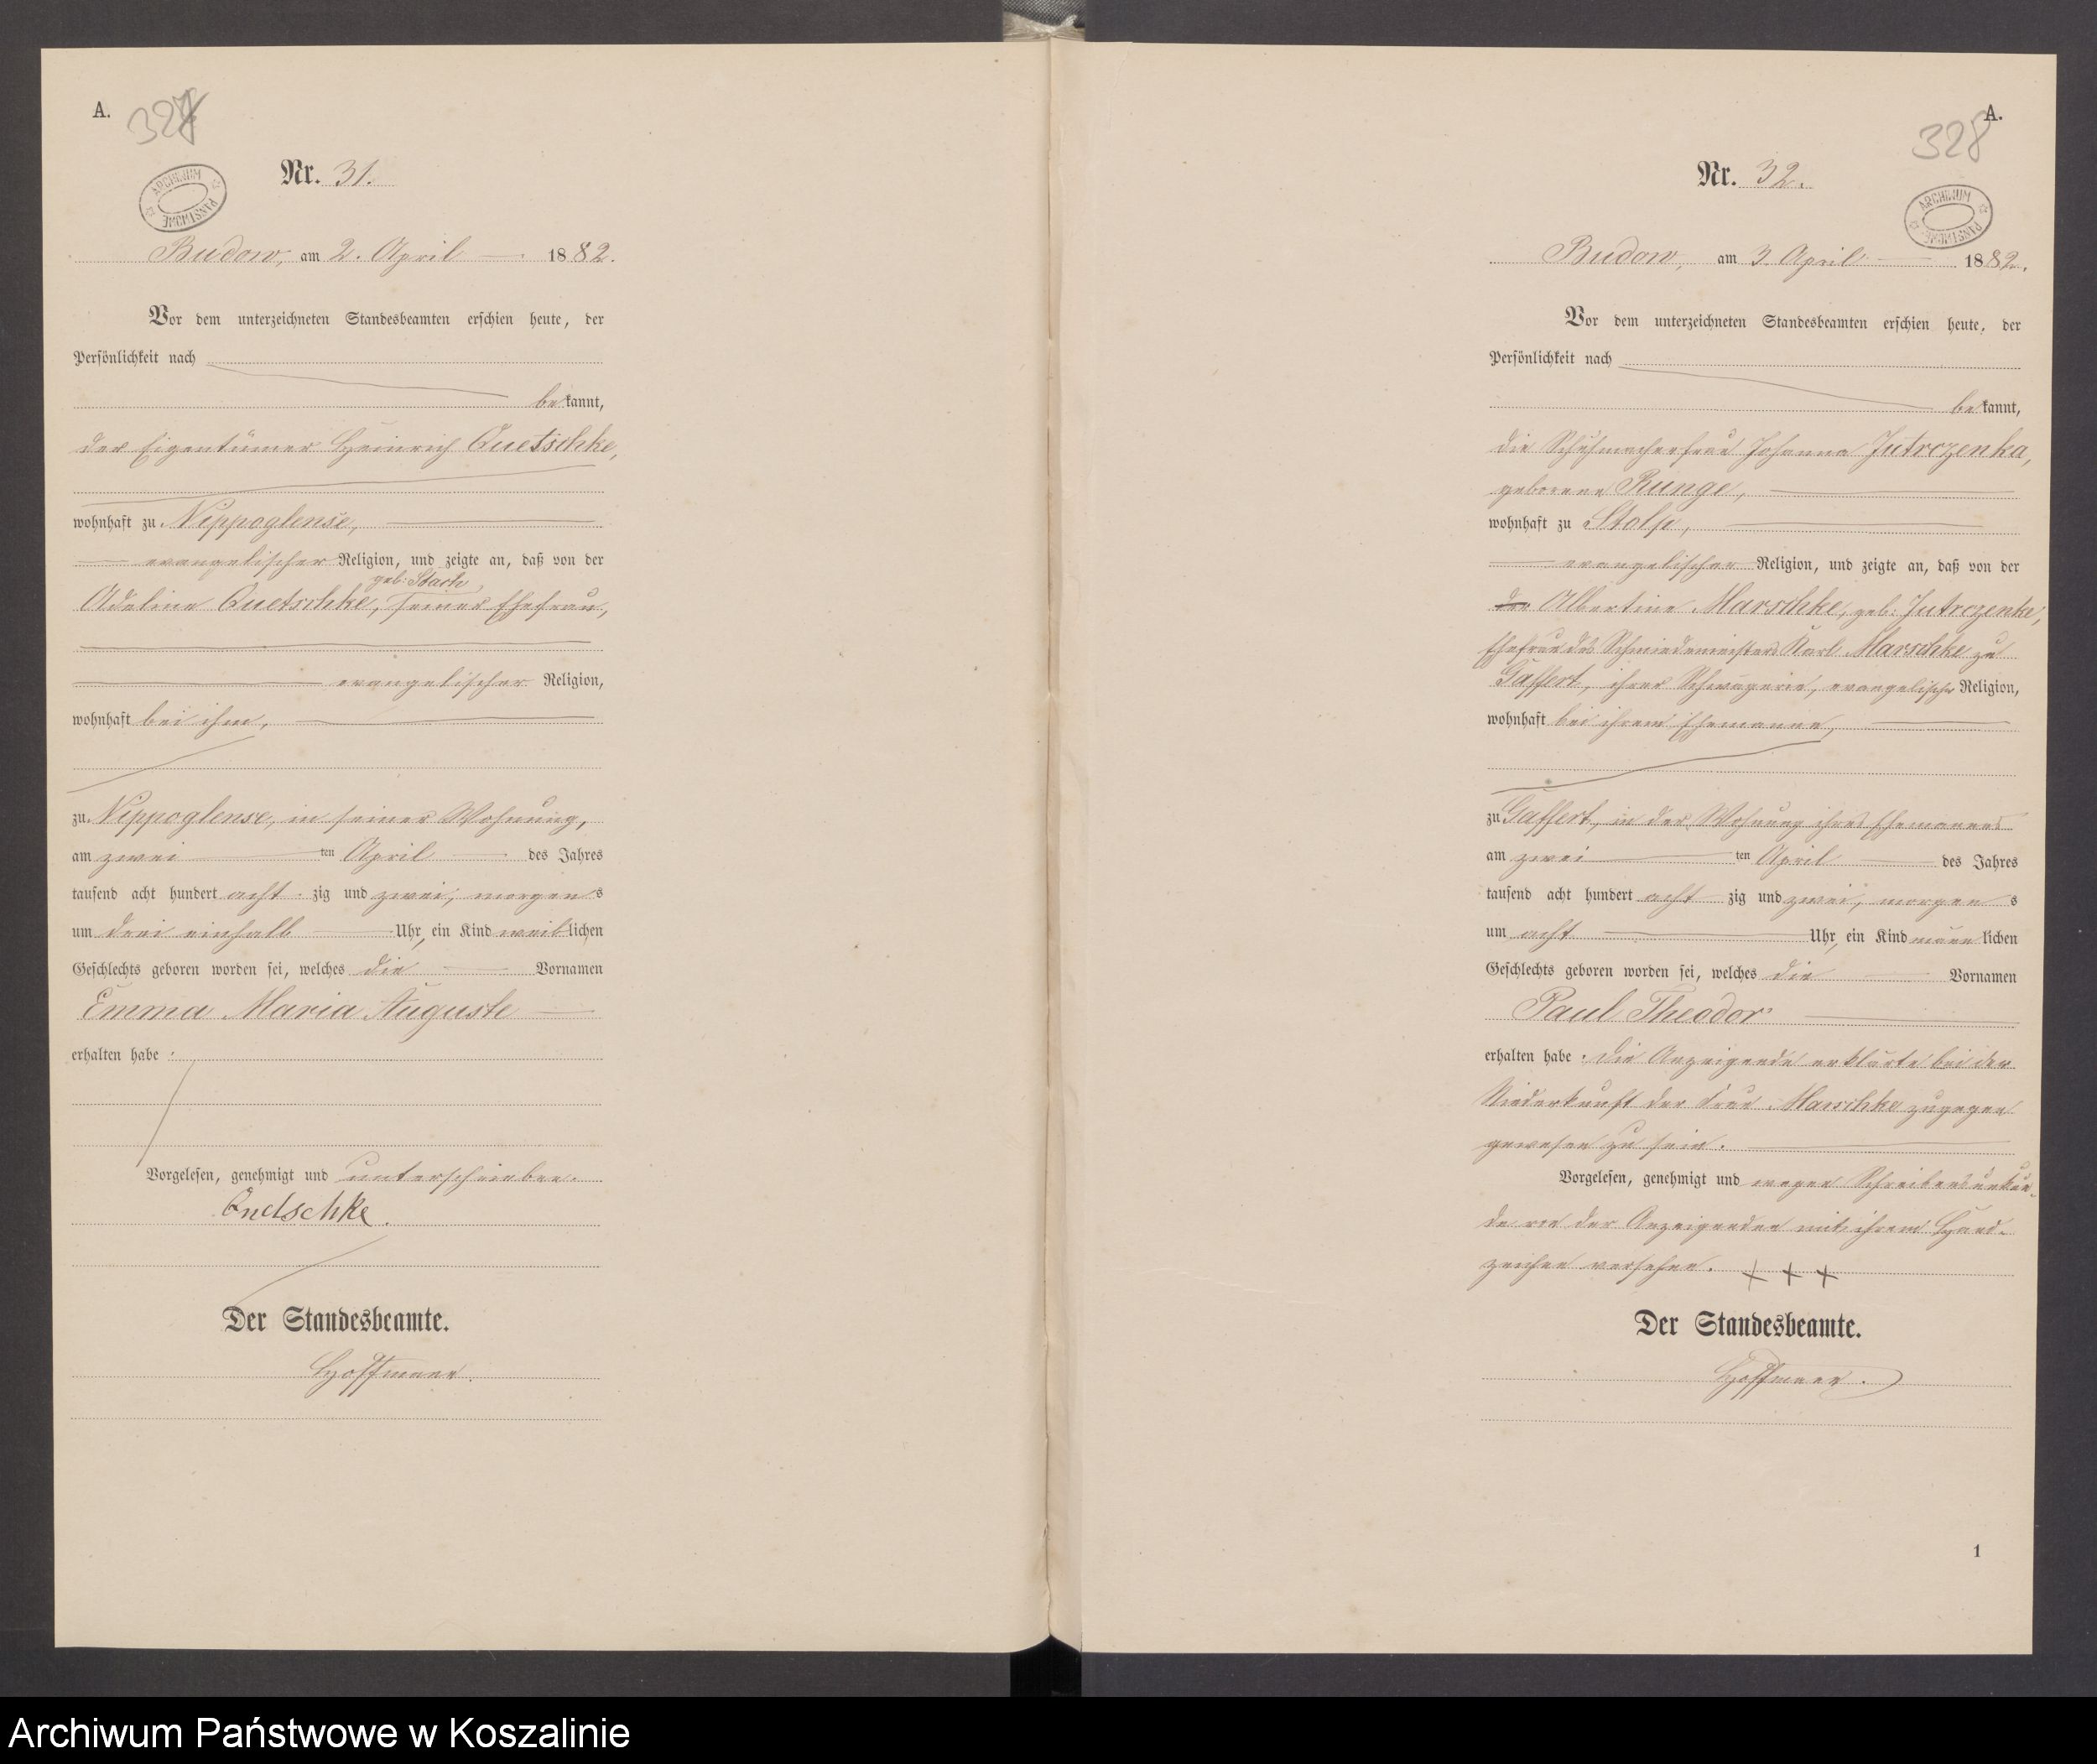 A.
327
ARCHIWUM PAŃSTWOWE
Nr. 31.
Budow, am 2. April 1882.
Vor dem unterzeichneten Standesbeamten erschien heute, der
Persönlichkeit nach
bekannt,
der Eigentümer Heinrich Quetschke,
wohnhaft zu Nippoglense,
evangelischer Religion, und zeigte an, daß von der
geb: Stach
Adeline Quetschke, seiner Ehefrau,
evangelischer Religion,
wohnhaft bei ihm,
zu Nippoglense, in seiner Wohnung,
am zwei ten April des Jahres
tausend acht hundert acht zig und zwei, morgens
um drei einhalb Uhr, ein Kind weiblichen
Geschlechts geboren worden sei, welches die Vornamen
Emma Maria Auguste
erhalten habe.
Vorgelesen, genehmigt und unterschrieben.
Quetschke.
Der Standesbeamte.
Hoffmann.
A.
328
ARCHIWUM PAŃSTWOWE
Nr. 32.
Budow, am 3. April 1882.
Vor dem unterzeichneten Standesbeamten erschien heute, der
Persönlichkeit nach
bekannt,
die Schuhmacherfrau Johanna Jutrczenka,
geborene Runge,
wohnhaft zu Stolp,
evangelischer Religion, und zeigte an, daß von der
der Albertine Marschke, geb: Jutrczenka,
Ehefrau des Schmiedemeisters Karl Marschke zu
Gaffert, ihrer Schwägerin, evangelischer Religion,
wohnhaft bei ihrem Ehemanne,
zu Gaffert, in der Wohnung ihres Ehemannes
am zwei ten April des Jahres
tausend acht hundert acht zig und zwei, morgens
um acht Uhr, ein Kind männlichen
Geschlechts geboren worden sei, welches die Vornamen
Paul Theodor
erhalten habe. Die Anzeigende erklärte bei der
Niederkunft der Frau Marschke zugegen
gewesen zu sein.
Vorgelesen, genehmigt und wegen Schreibensunkun-
de von der Anzeigenden mit ihrem Hand-
zeichen versehen. + + +
Der Standesbeamte.
Hoffmann.
1
Archiwum Państwowe w Koszalinie